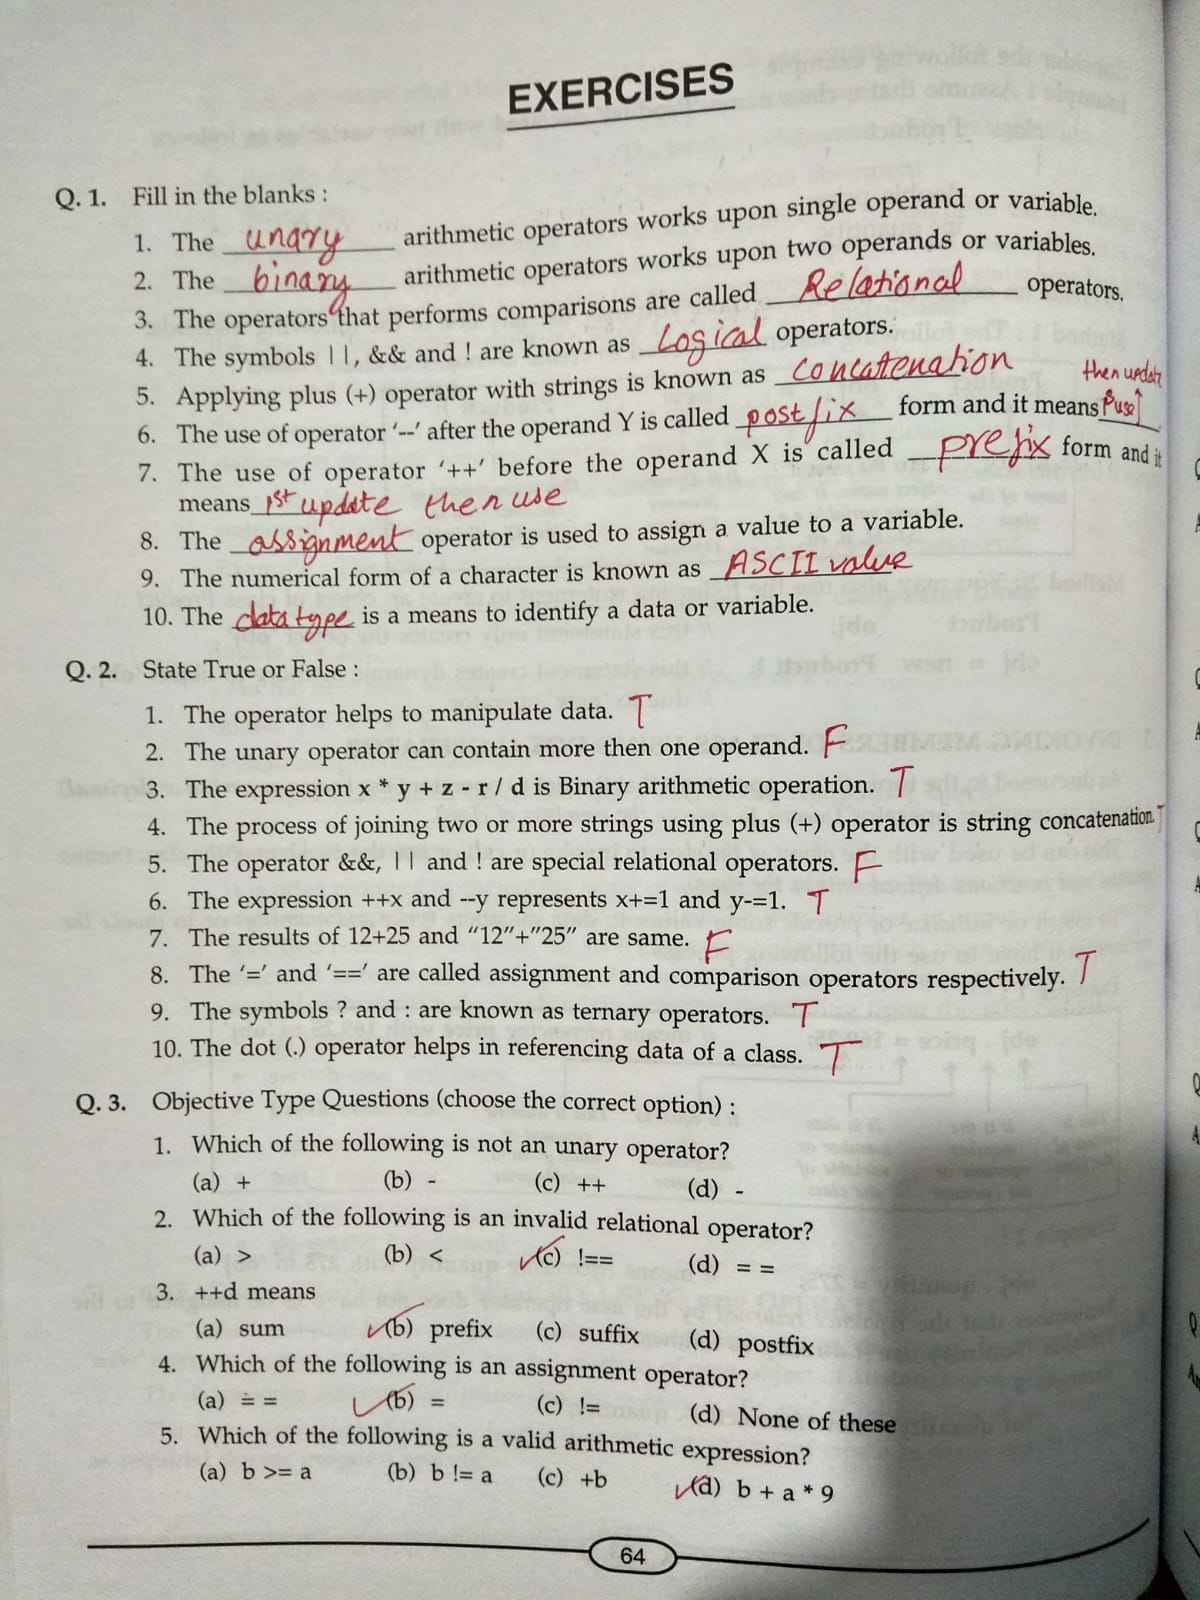 EXERCISES
Q. 1. Fill in the blanks :
1. The unary arithmetic operators works upon single operand or variable.
2. The binary arithmetic operators works upon two operands or variables.
3. The operators that performs comparisons are called Relational operators.
4. The symbols ||, && and ! are known as Logical operators.
5. Applying plus (+) operator with strings is known as concattenation
then update
6. The use of operator '--' after the operand Y is called postfix form and it means
7. The use of operator '++' before the operand X is called prefix form and it
means 1st update then use
8. The assignment operator is used to assign a value to a variable.
9. The numerical form of a character is known as ASCII value
10. The data type is a means to identify a data or variable.
Q. 2. State True or False :
1. The operator helps to manipulate data. T
2. The unary operator can contain more then one operand. F
3. The expression x * y + z - r / d is Binary arithmetic operation. T
4. The process of joining two or more strings using plus (+) operator is string concatenation. T
5. The operator &&, || and ! are special relational operators. F
6. The expression ++x and --y represents x+=1 and y-=1. T
7. The results of 12+25 and "12"+"25" are same. F
8. The '=' and '==' are called assignment and comparison operators respectively. T
9. The symbols ? and : are known as ternary operators. T
10. The dot (.) operator helps in referencing data of a class. T
Q. 3. Objective Type Questions (choose the correct option) :
1. Which of the following is not an unary operator?
(a) + (b) - (c) ++ (d) -
2. Which of the following is an invalid relational operator?
(a) > (b) < (c) !== (d) = =
3. ++d means
(a) sum (b) prefix (c) suffix (d) postfix
4. Which of the following is an assignment operator?
(a) = = (b) = (c) != (d) None of these
5. Which of the following is a valid arithmetic expression?
(a) b >= a (b) b != a (c) +b (d) b + a * 9
64